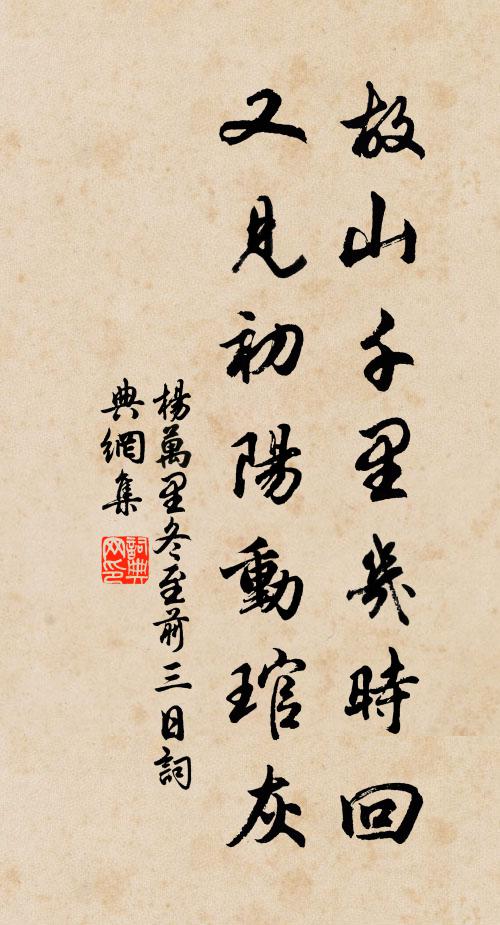 故山千里幾時回
又見初陽動琯灰
楊萬里冬至前三日詞
典網集
詞典
网印